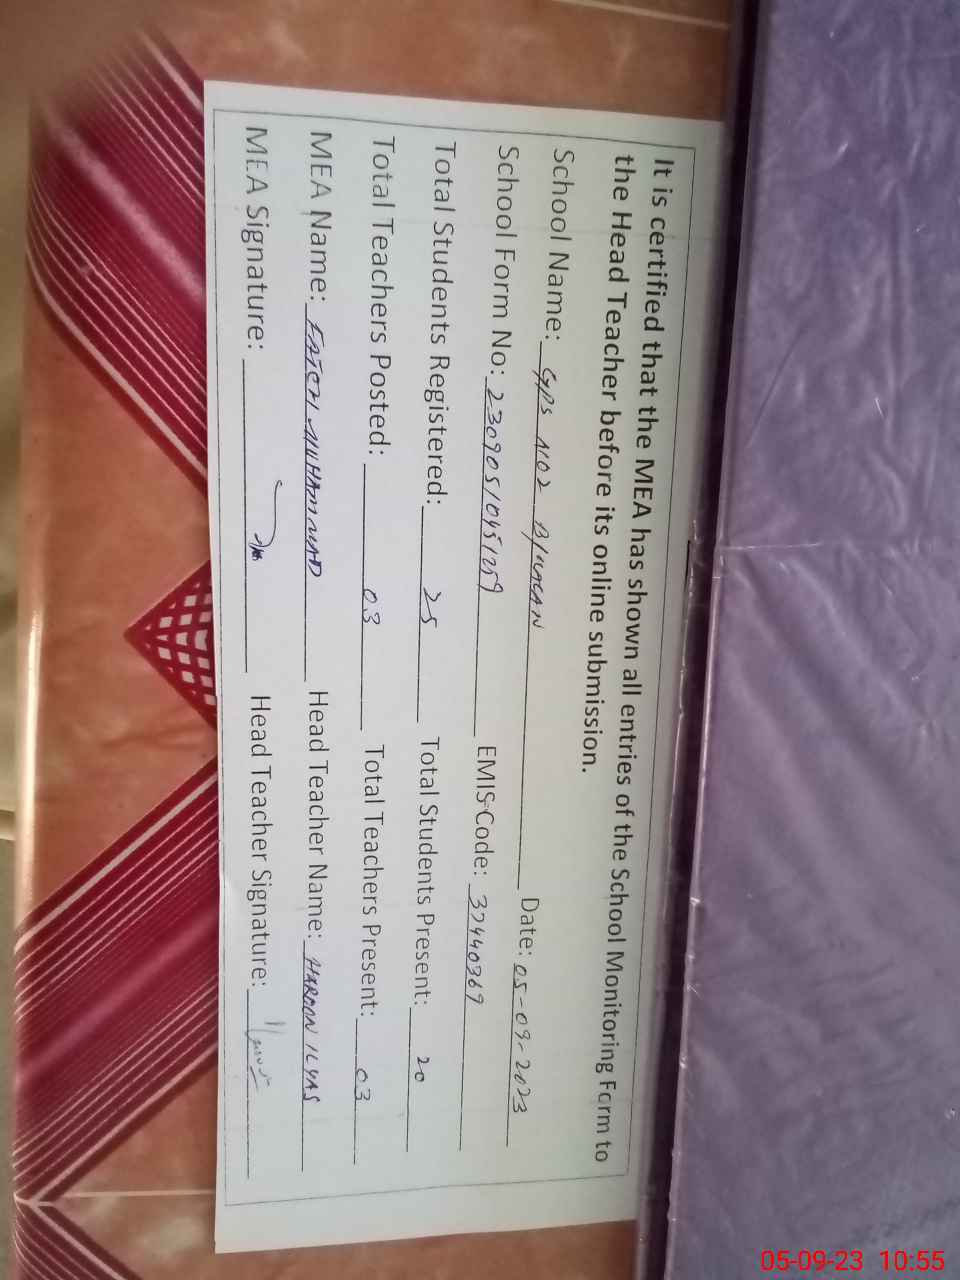 It is certified that the MEA has shown all entries of the School Monitoring Form to
the Head Teacher before its online submission.
School Name: GPS NO2 Date: 05-09-2023
School Form No: EMIS Code: 37440369
Total Students Registered: 25 Total Students Present: 20
Total Teachers Posted: 03 Total Teachers Present: 03
MEA Name: MUHAMMAD Head Teacher Name: HAROON ILYAS
MEA Signature: Head Teacher Signature:
05-09-23 10:55